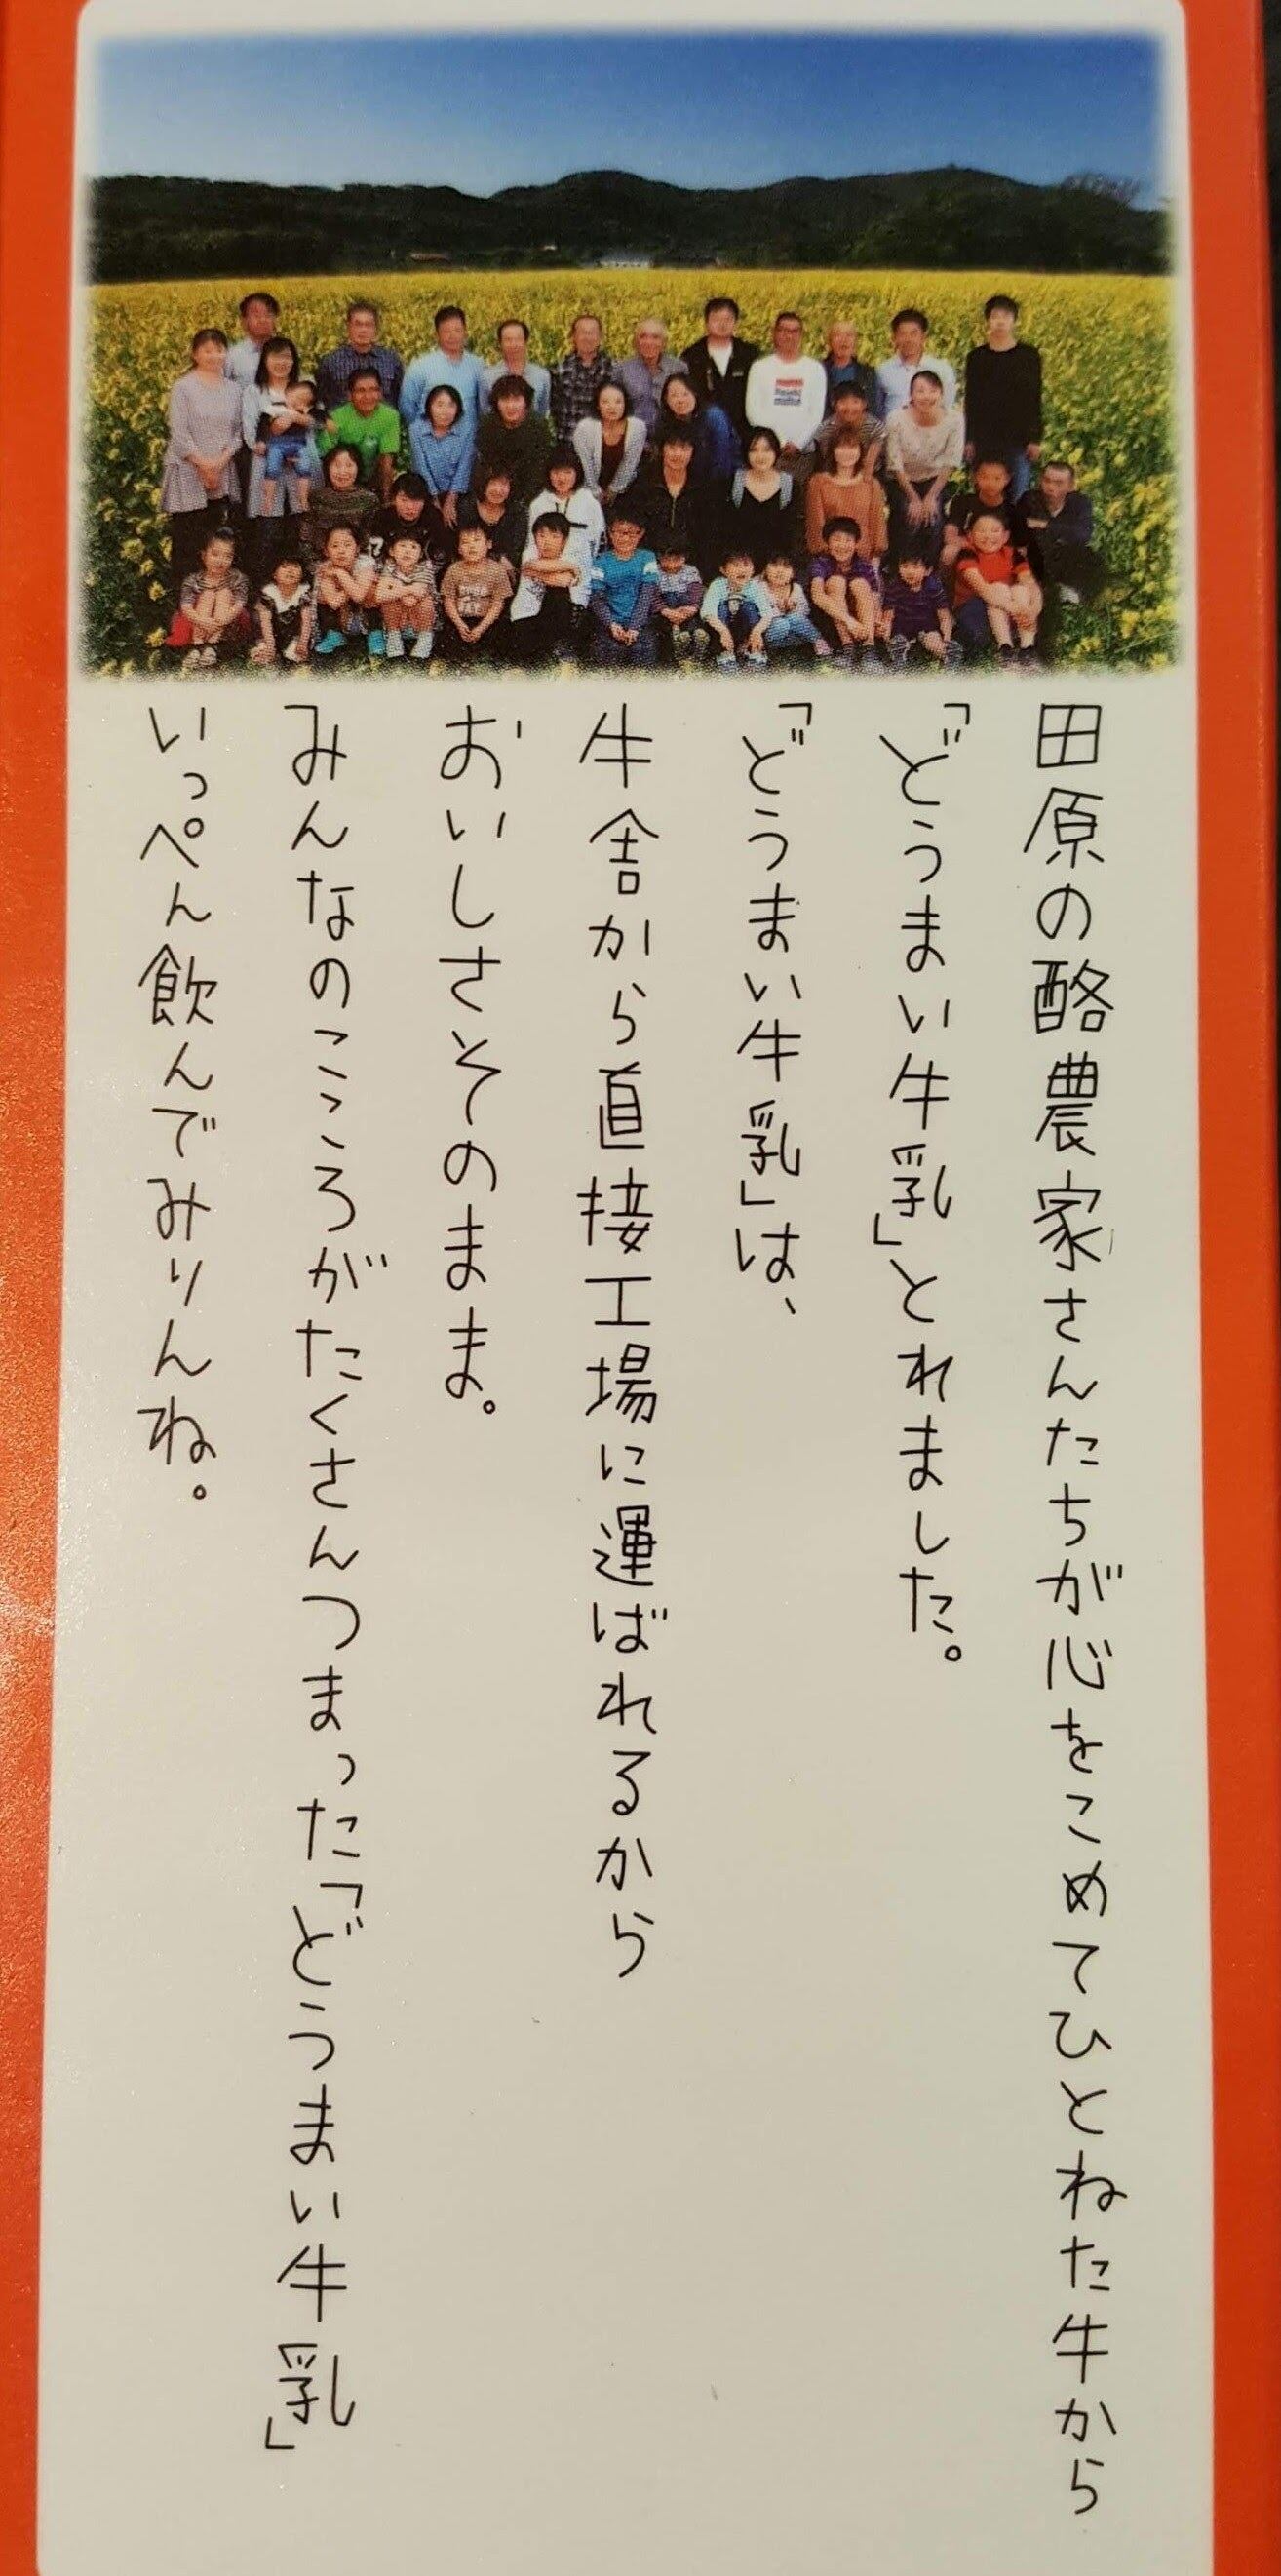 田原の酪農家さんたちが心をこめてひとねた牛から
「どうまい牛乳」とれました。
「どうまい牛乳」は、
牛舎から直接工場に運ばれるから
おいしさそのまま。
みんなのこころがたくさんつまった「どうまい牛乳」
いっぺん飲んでみりんね。